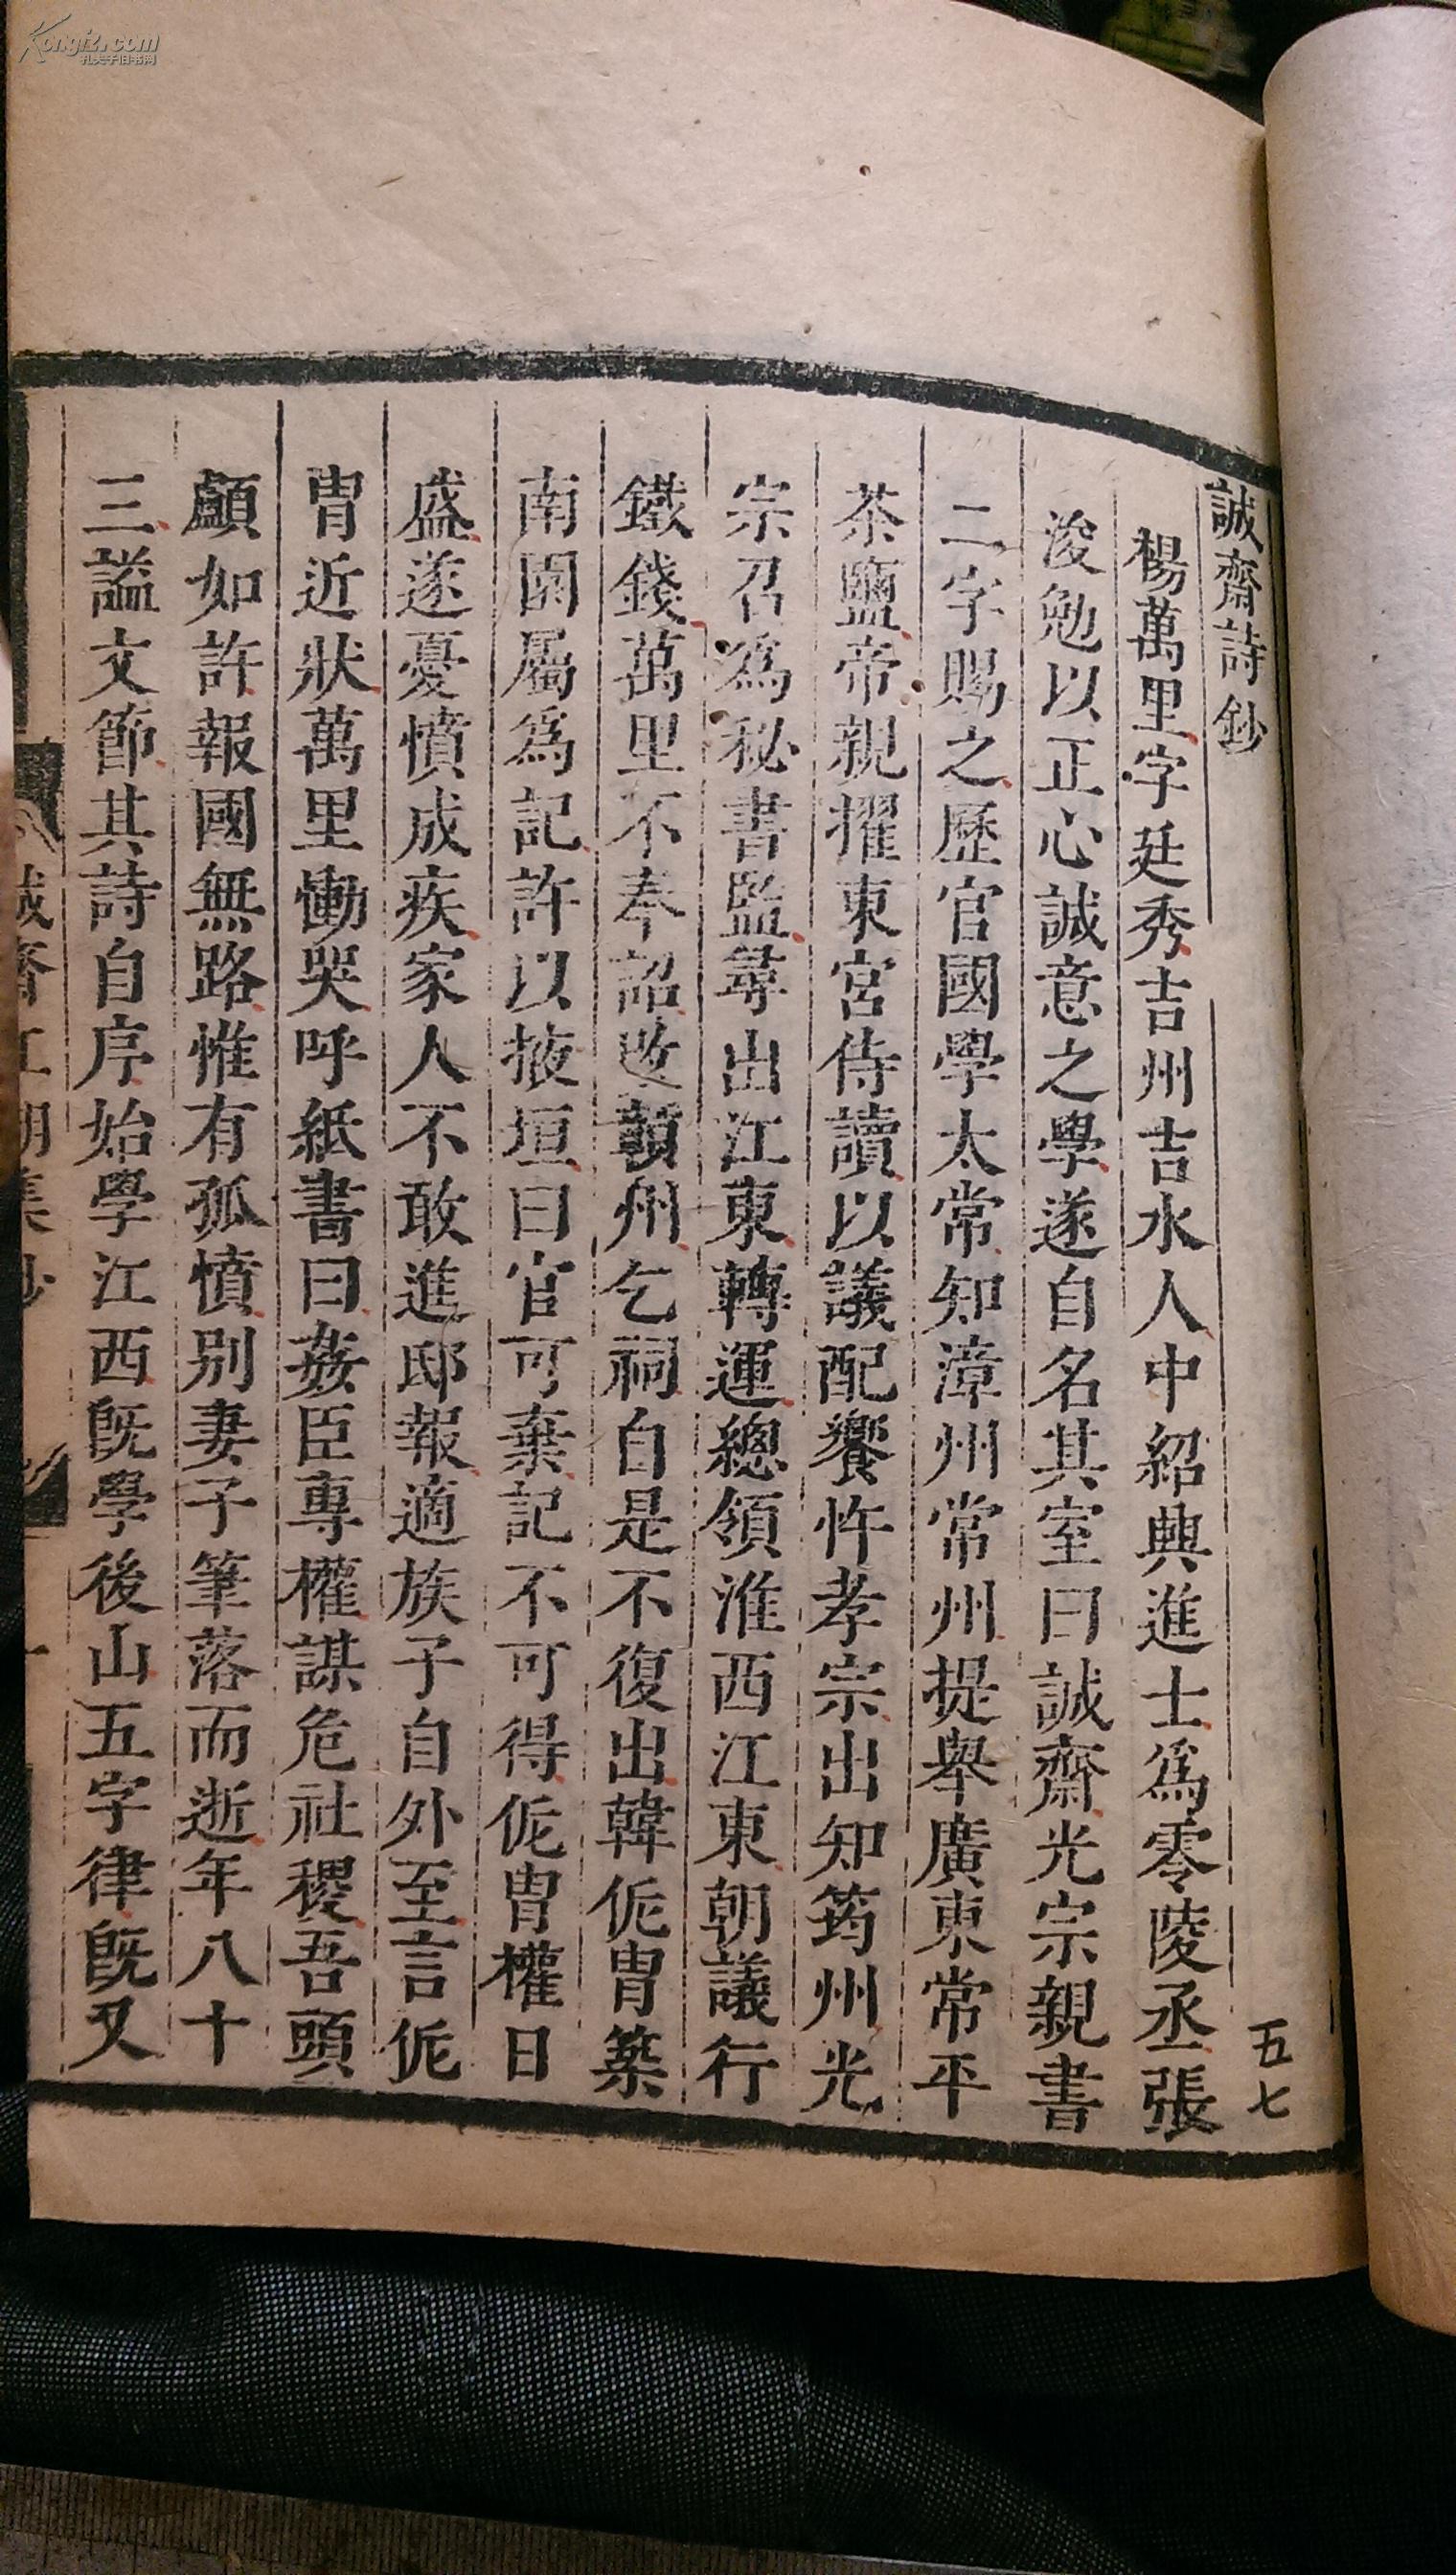 誠齋詩鈔
五七
楊萬里字廷秀吉州吉水人中紹興進士爲零陵丞張
浚勉以正心誠意之學遂自名其室曰誠齋光宗親書
二字賜之歷官國學太常知漳州常州提舉廣東常平
茶鹽帝親擢東宮侍讀以議配饗忤孝宗出知筠州光
宗召爲秘書監尋出江東轉運總領淮西江東朝議行
鐵錢萬里不奉詔改贑州乞祠自是不復出韓侂冑築
南園屬爲記許以掖垣曰官可棄記不可得侂冑權日
盛遂憂憤成疾家人不敢進邸報適族子自外至言侂
冑近狀萬里慟哭呼紙書曰姦臣專權謀危社稷吾頭
顱如許報國無路惟有孤憤別妻子筆落而逝年八十
三謚文節其詩自序始學江西旣學後山五字律旣又
誠齋江湖集鈔
一
Kongfz.com
孔夫子旧书网